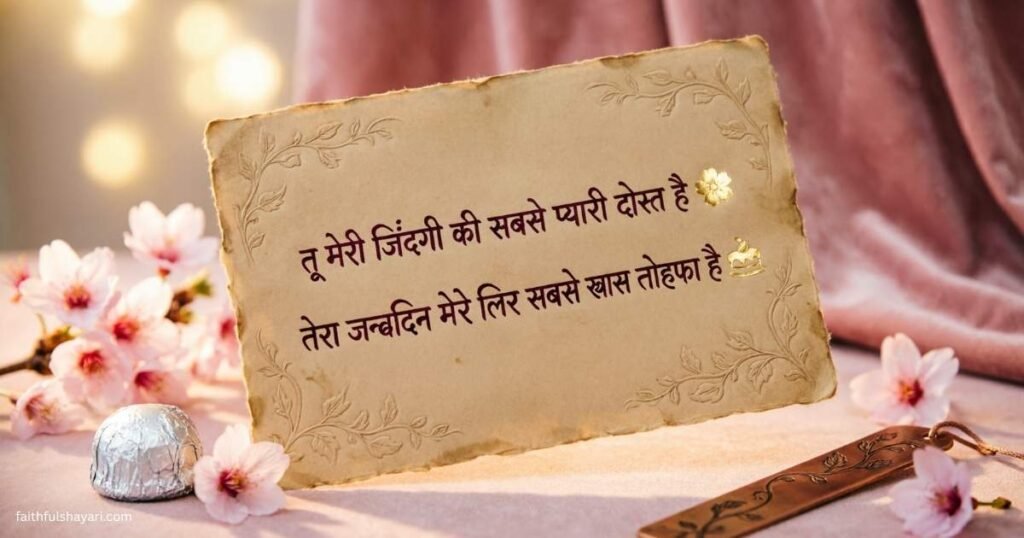 तू मेरी जिंदगी की सबसे प्यारी दोस्त है
तेरा जन्वदिन मेरे लिर सबसे खास तोहफा है
faithfulshayari.com